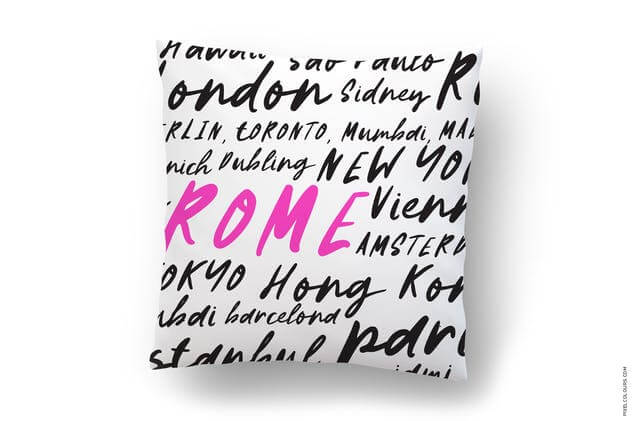 Hawaii Sao Paulo
London Sidney R
ERLIN, tORONTO, Mumbai, MA
nich Dubling NEW YO
ROME Vienn
AMSTERD
TOKYO Hong Kon
mbai barcelona pari
stanbul iami
PIXELCOLOURS.COM